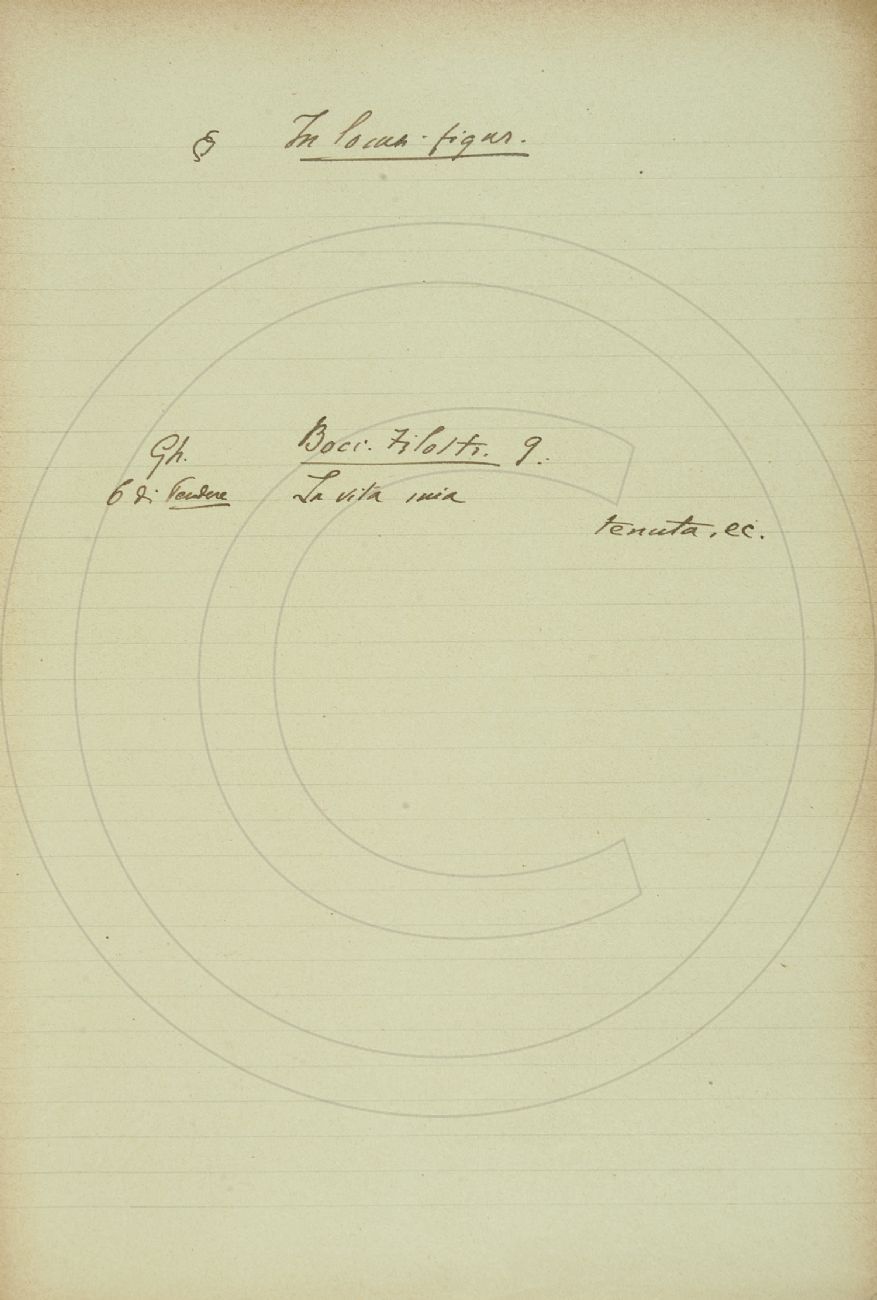 § In locuz. figur.
Gh. Bocc. Filostr. 9.
6 di Tendere La vita mia
tenuta, ec.